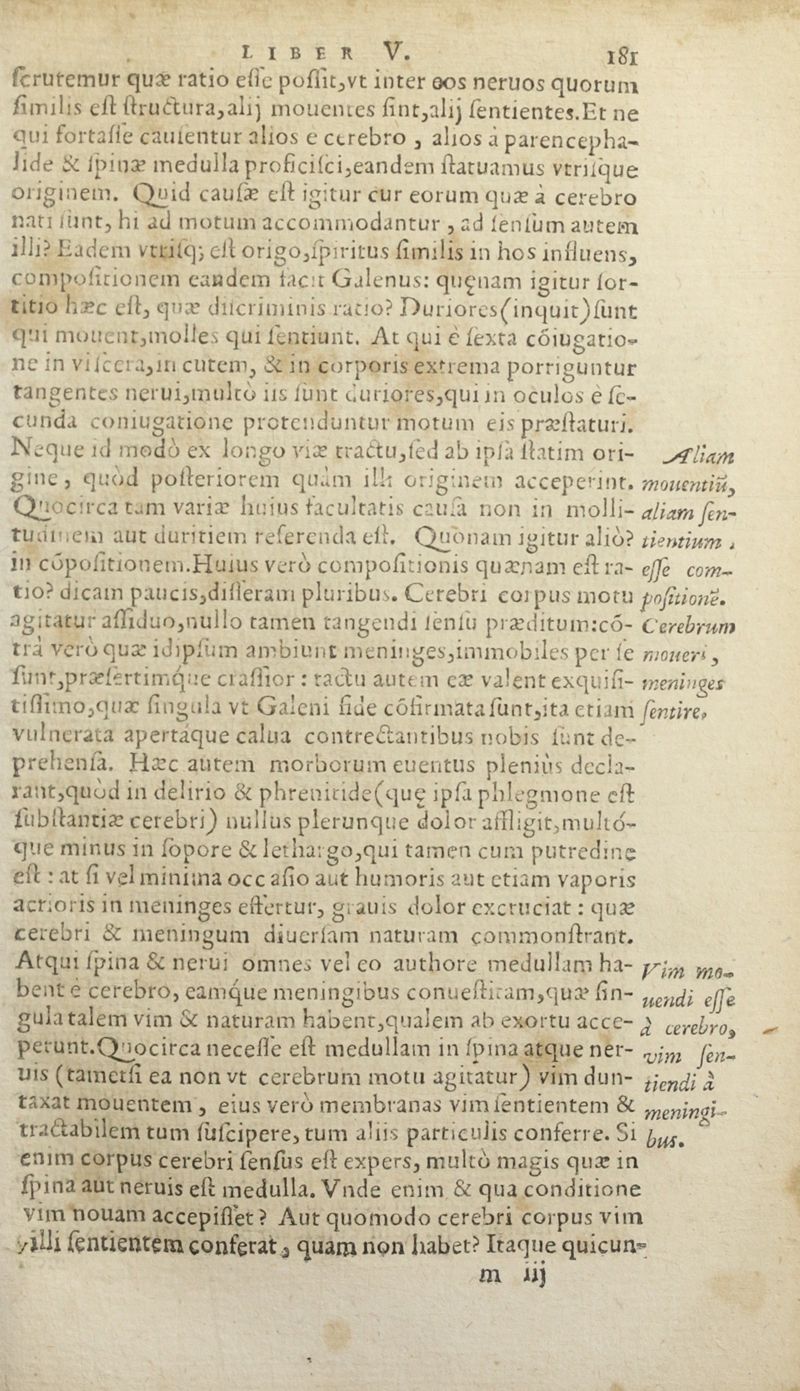 LIBER V. 181
ſcrutemur quæ ratio eſſe poſſit,vt inter eos neruos quorum
ſimilis eſt ſtructura,alij mouentes ſint,alij ſentientes.Et ne
qui fortaſſe cauſentur alios e cerebro , alios à parencepha-
lide & ſpinæ medulla proficiſci,eandem ſtatuamus vtriſque
originem. Quid cauſæ eſt igitur cur eorum quæ à cerebro
nati ſunt, hi ad motum accommodantur , ad ſenſum autem
illi? Eadem vtriſq; eſt origo,ſpiritus ſimilis in hos influens,
compoſitionem eandem facit Galenus: quęnam igitur ſor-
titio hæc eſt, quæ diſcriminis ratio? Duriores(inquit)ſunt
qui mouent,molles qui ſentiunt. At qui è ſexta cóiugatio-
ne in viſcera,in cutem, & in corporis extrema porriguntur
tangentes nerui,multò iis ſunt duriores,qui in oculos è ſe-
cunda coniugatione protenduntur motum eis præſtaturi.
Neque id modò ex longo viæ tractu,ſed ab ipſa ſtatim ori-
gine, quòd poſteriorem quàm illi originem acceperint.
Quocirca tam variæ huius facultatis cauſa non in molli-
tudinem aut duritiem referenda eſt. Quònam igitur aliò?
in cópoſitionem.Huius verò compoſitionis quænam eſt ra-
tio? dicam paucis,diſſeram pluribus. Cerebri corpus motu
agitatur aſſiduo,nullo tamen tangendi ſenſu præditum:cō-
trà verò quæ idipſum ambiunt meninges,immobiles per ſe
ſunt,præſertimque craſſior : tactu autem eæ valent exquiſi-
tiſſimo,quæ ſingula vt Galeni fide cōfirmata ſunt,ita etiam
vulnerata apertáque calua contrectantibus nobis ſunt de-
prehenſa. Hæc autem morborum euentus pleniùs decla-
rant,quòd in delirio & phrenitide(quę ipſa phlegmone eſt
ſubſtantiæ cerebri) nullus plerunque dolor affligit,multó-
que minus in ſopore & lethargo,qui tamen cum putredine
eſt : at ſi vel minima occaſio aut humoris aut etiam vaporis
acrioris in meninges effertur, grauis dolor excruciat : quæ
cerebri & meningum diuerſam naturam commonſtrant.
Atqui ſpina & nerui omnes vel eo authore medullam ha-
bent è cerebro, eamque meningibus conueſtitam,quæ ſin-
gula talem vim & naturam habent,qualem ab exortu acce-
perunt.Quocirca neceſſe eſt medullam in ſpina atque ner-
uis (tametſi ea non vt cerebrum motu agitatur) vim dun-
taxat mouentem , eius verò membranas vim ſentientem &
tractabilem tum ſuſcipere, tum aliis particulis conferre. Si
enim corpus cerebri ſenſus eſt expers, multò magis quæ in
ſpina aut neruis eſt medulla. Vnde enim & qua conditione
vim nouam accepiſſet? Aut quomodo cerebri corpus vim
illi ſentientem conferat, quam non habet? Itaque quicun-
m iij
Aliam
mouentiū,
aliam ſen-
tientium
eſſe com-
poſitionē.
Cerebrum
moueri,
meninges
ſentire.
Vim mo-
uendi eſſe
à cerebro,
vim ſen-
tiendi à
meningi-
bus.